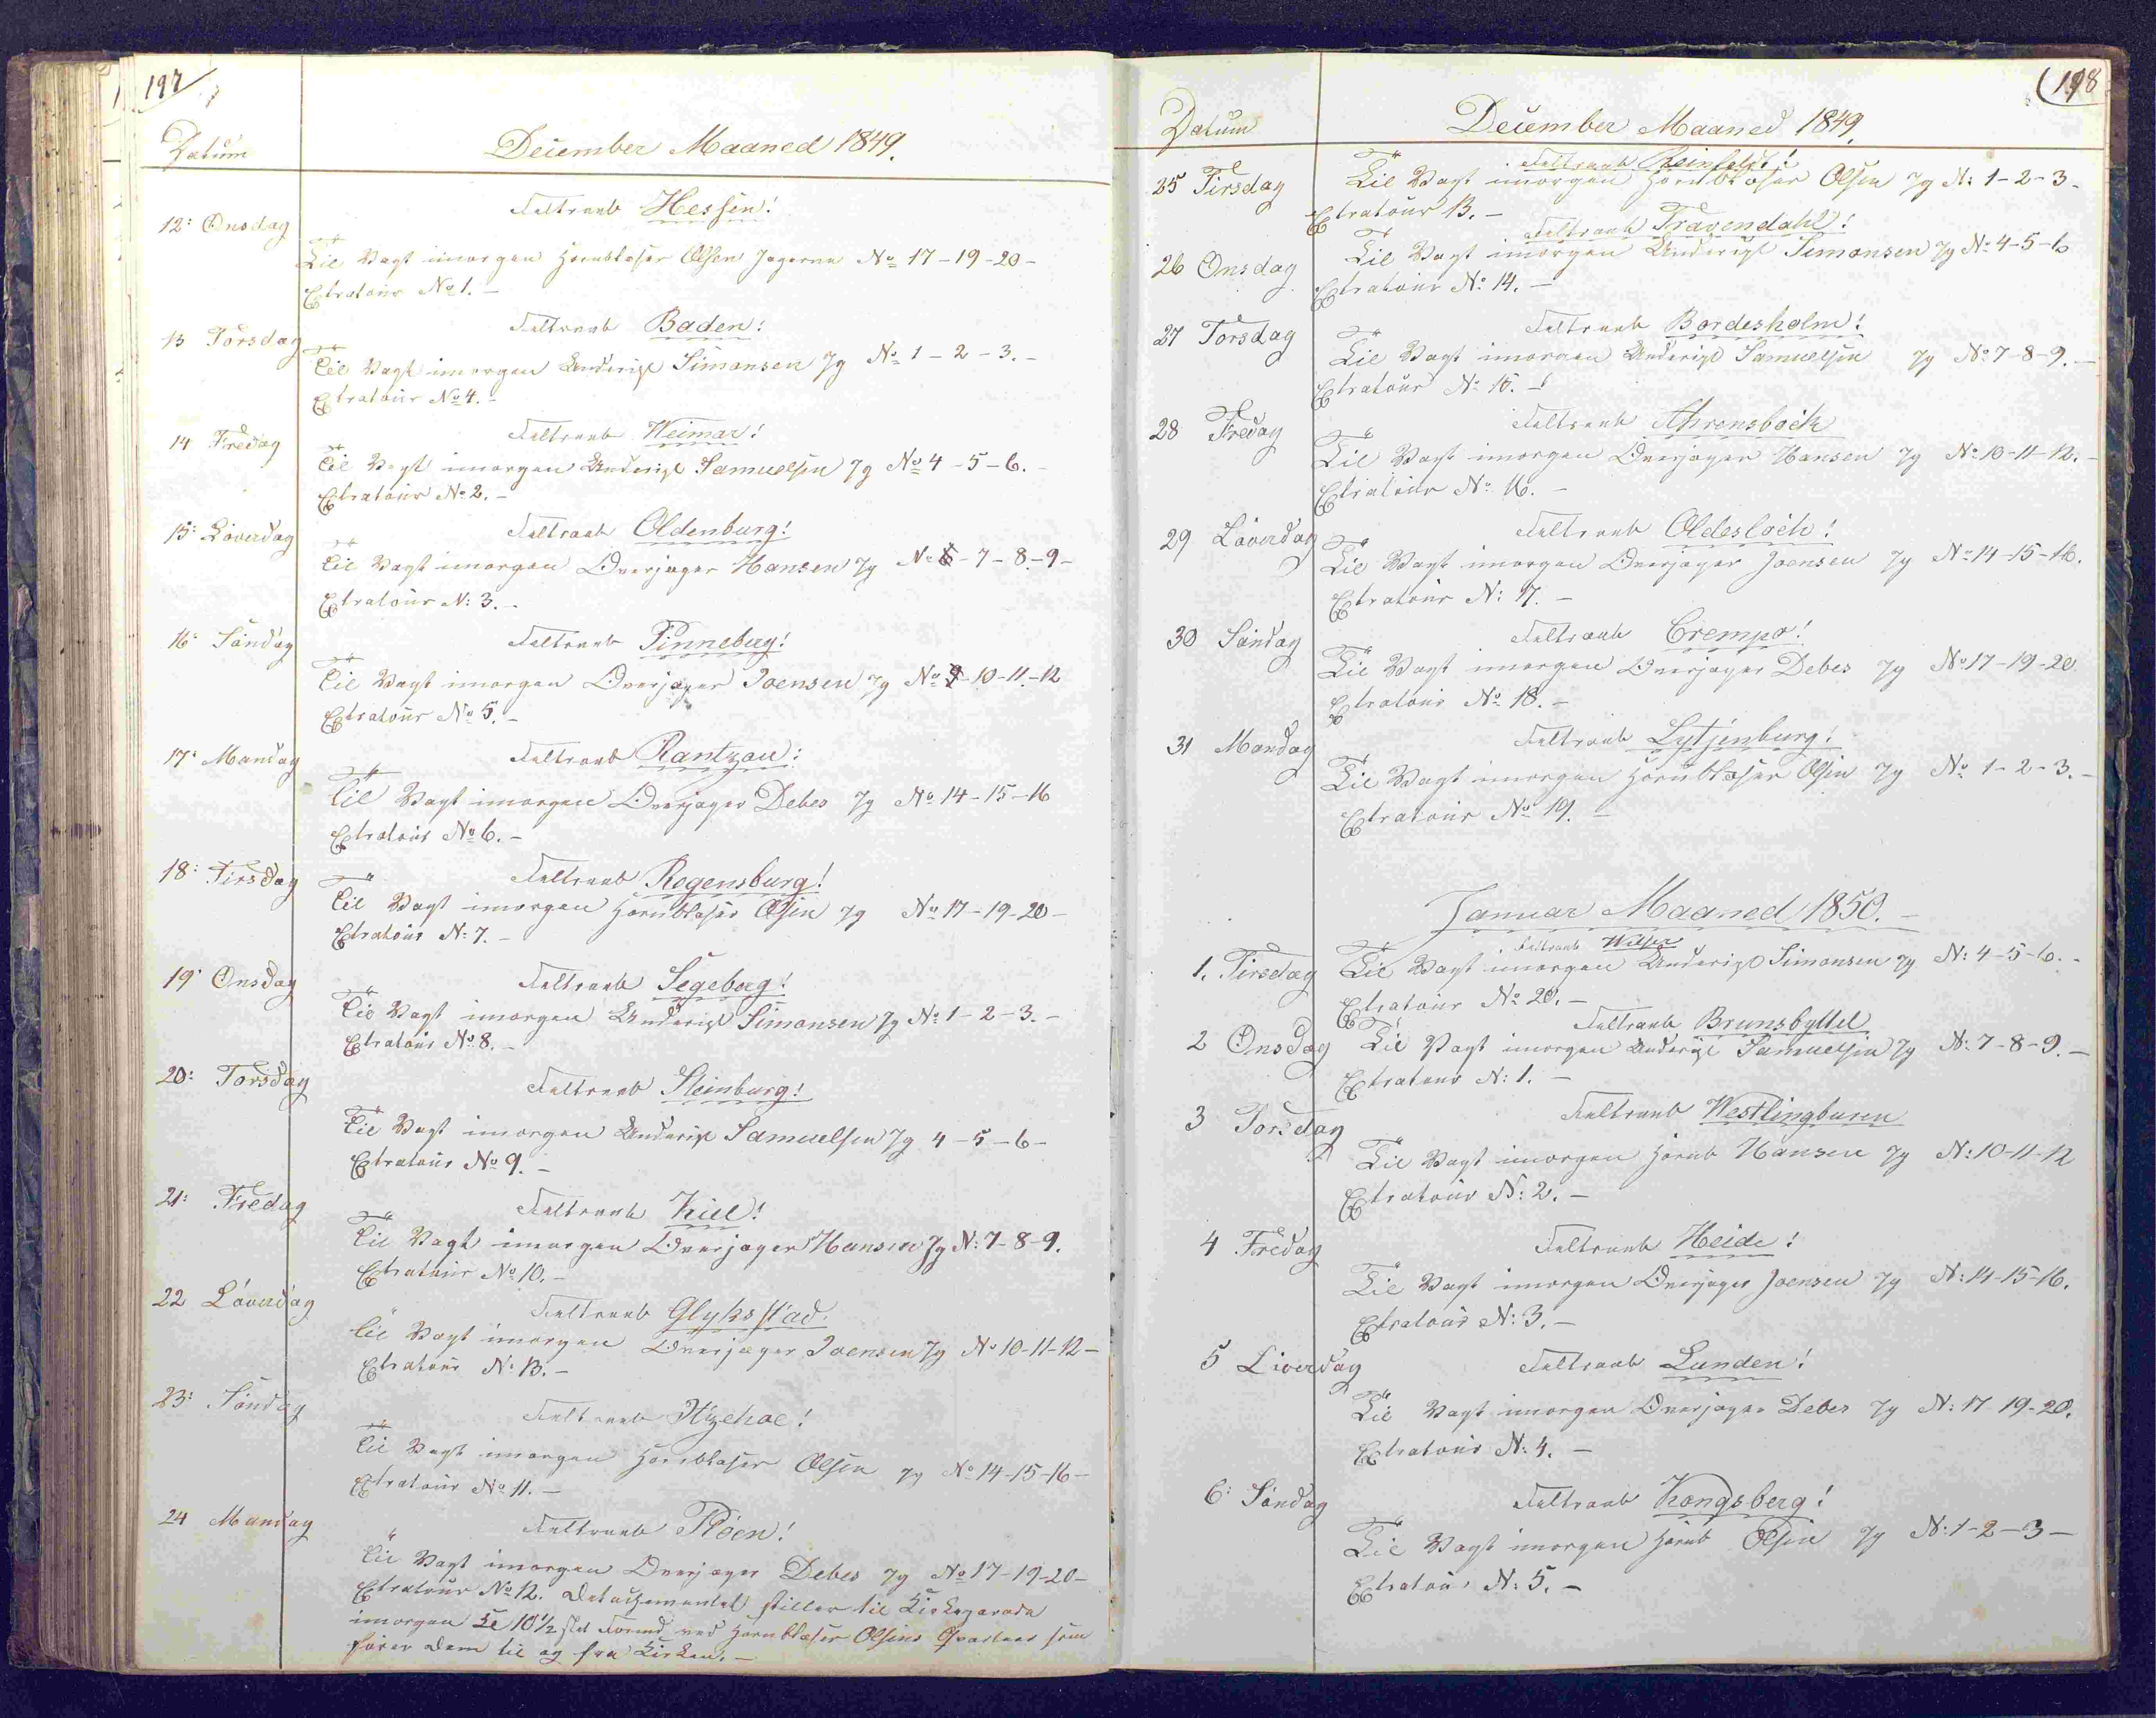 197
Datum
December Maaned 1849.
Feltraab Hessen!
12: Onsdag
Til Vagt imorgen Hornblæser Olsen Jægerne No 17-19-20-
Extratour No 1.-
Feltraab Baden!
13 Torsdag
Til Vagt imorgen Underigl Simonsen Jg No 1-2-3.-
Extratour No 4.-
Feltraab Weimar!
14 Fredag
Til Vagt imorgen Underigl Samuelsen Jg No 4-5-6.-
Extratour No 2.-
Feltraab Oldenburg!
15: Löverdag
Til Vagt imorgen Overjæger Hansen Jg No 7-8-9-
Extratour N: 3.-
Feltraab Pinneberg!
16: Söndag
Til Vagt imorgen Overjæger Joensen Jg No 10-11-12
Extratour No 5.-
Feltraab Rantzau!
17: Mandag
Til Vagt imorgen Overjæger Debes Jg No 14-15-16
Extratour No 6.-
Feltraab Regensburg!
18: Tirsdag
Til Vagt imorgen Hornblæser Olsen Jg No 17-19-20-
Extratour N: 7.-
Feltraab Segeberg!
19: Onsdag
Til Vagt imorgen Underigl Simonsen Jg No 1-2-3.-
Extratour No 8.-
Feltraab Steinburg!
20: Torsdag
Til Vagt imorgen Underigl Samuelsen Jg 4-5-6-
Extratour No 9.-
Feltraab Kiel!
21: Fredag
Til Vagt imorgen Overjæger Hansen Jg N: 7-8-9.
Extratour No 10.-
Feltraab Glyksstad.
22 Löverdag
Til Vagt imorgen Overjæger Joensen Jg No 10-11-12-
Extratour N: 13.-
Feltraab Itzehoe!
23: Söndag
Til Vagt imorgen Hornblæser Olsen Jg No 14-15-16-
Extratour No 11.-
Feltraab Plöen!
24 Mandag
Til Vagt imorgen Overjæger Debes Jg No 17-19-20-
Extratour No 12. Detachementet stiller til Kirkeparade
imorgen Kl 10 1/2 ved Hornblæser Olsens Qvarteer som
förer dem til og fra Kirken.-
198
Datum
December Maaned 1849.
Feltraab Reinfeldt!
25 Tirsdag
Til Vagt imorgen Hornblæser Olsen Jg N: 1-2-3-
Extratour 13.-
Feltraab Travendahl!
26 Onsdag
Til Vagt imorgen Underigl Simonsen Jg No 4-5-6
Extratour No 14.-
Feltraab Bordesholm!
27 Torsdag
Til Vagt imorgen Underigl Samuelsen Jg No 7-8-9.-
Extratour No 15.-
Feltraab Ahrensböck
28 Fredag
Til Vagt imorgen Overjæger Hansen Jg No 10-11-12.-
Extratour No 16.-
Feltraab Oldeslöch!
29 Löverdag
Til Vagt imorgen Overjæger Joensen Jg No 14-15-16.
Extratour N: 17.-
Feltraab Crempo!
30 Söndag
Til Vagt imorgen Overjæger Debes Jg No 17-19-20.
Extratour No 18.-
Feltraab Lytjenburg!
31 Mandag
Til Vagt imorgen Hornblæser Olsen Jg No 1-2-3.-
Extratour No 19.-
Januar Maaned 1850.-
Feltraab Wilster
1. Tirsdag
Til Vagt imorgen Underigl Simonsen Jg N: 4-5-6.-
Extratour No 20.-
Feltraab Brunsbyttel
2 Onsdag
Til Vagt imorgen Underigl Samuelsen Jg N: 7-8-9.-
Extratour N: 1.-
Feltraab Westlingburen
3 Torsdag
Til Vagt imorgen Hornb Hansen Jg N: 10-11-12
Extratour N: 2.-
Feltraab Heide!
4 Fredag
Til Vagt imorgen Overjæger Joensen Jg N: 14-15-16.
Extratour N: 3.-
Feltraab Lunden!
5 Löverdag
Til Vagt imorgen Overjæger Debes Jg N: 17 19-20.
Extratour N: 4.-
Feltraab Kongsberg!
6: Söndag
Til Vagt imorgen Hornb Olsen Jg N: 1-2-3-
Extratour N: 5.-